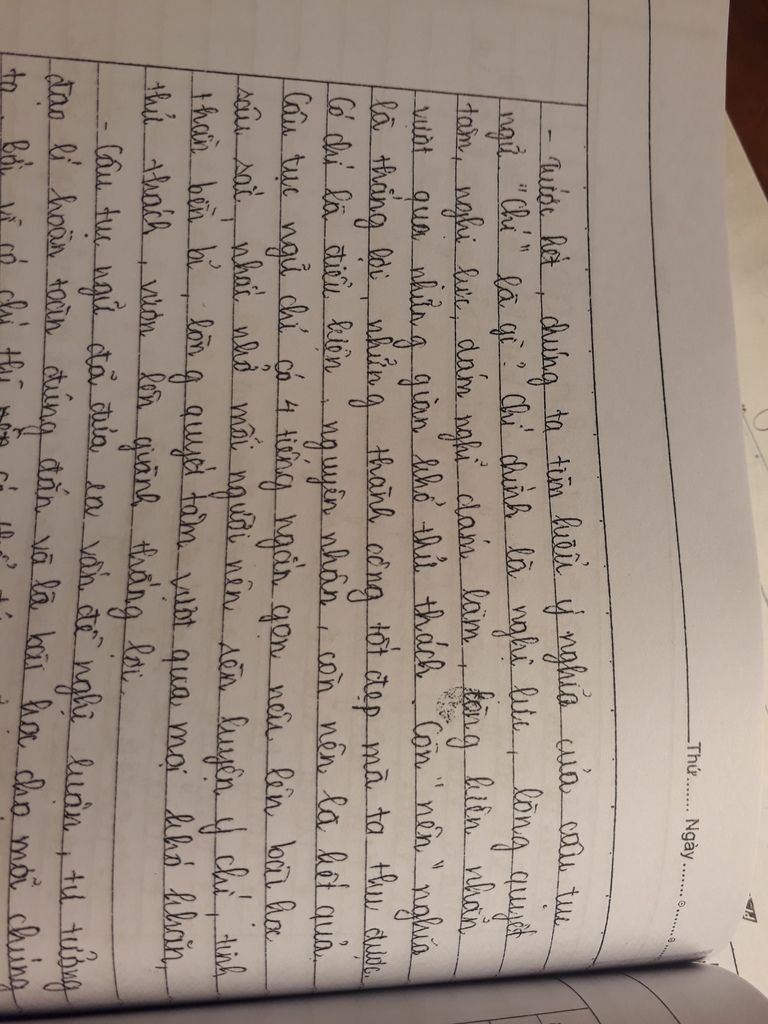 Thứ........ Ngày........
- Trước hết, chúng ta tìm hiểu ý nghĩa của câu tục
ngữ. "Chí" là gì? Chí chính là nghị lực, lòng quyết
tâm, nghị lực, dám nghĩ dám làm, lòng kiên nhẫn
vượt qua những gian khó thử thách. Còn "nên" nghĩa
là thắng lợi, những thành công tốt đẹp mà ta thu được.
Có chí là điều kiện, nguyên nhân, còn nên là kết quả.
Câu tục ngữ chỉ có 4 tiếng ngắn gọn nêu lên bài học
sâu sắc, nhắc nhở mỗi người nên rèn luyện ý chí, tinh
thần bền bỉ, lòng quyết tâm vượt qua mọi khó khăn,
thử thách, vươn lên giành thắng lợi.
- Câu tục ngữ đã đưa ra vấn đề nghị luận, tư tưởng
đạo lí hoàn toàn đúng đắn và là bài học cho mỗi chúng
ta, bởi vì có chí thì